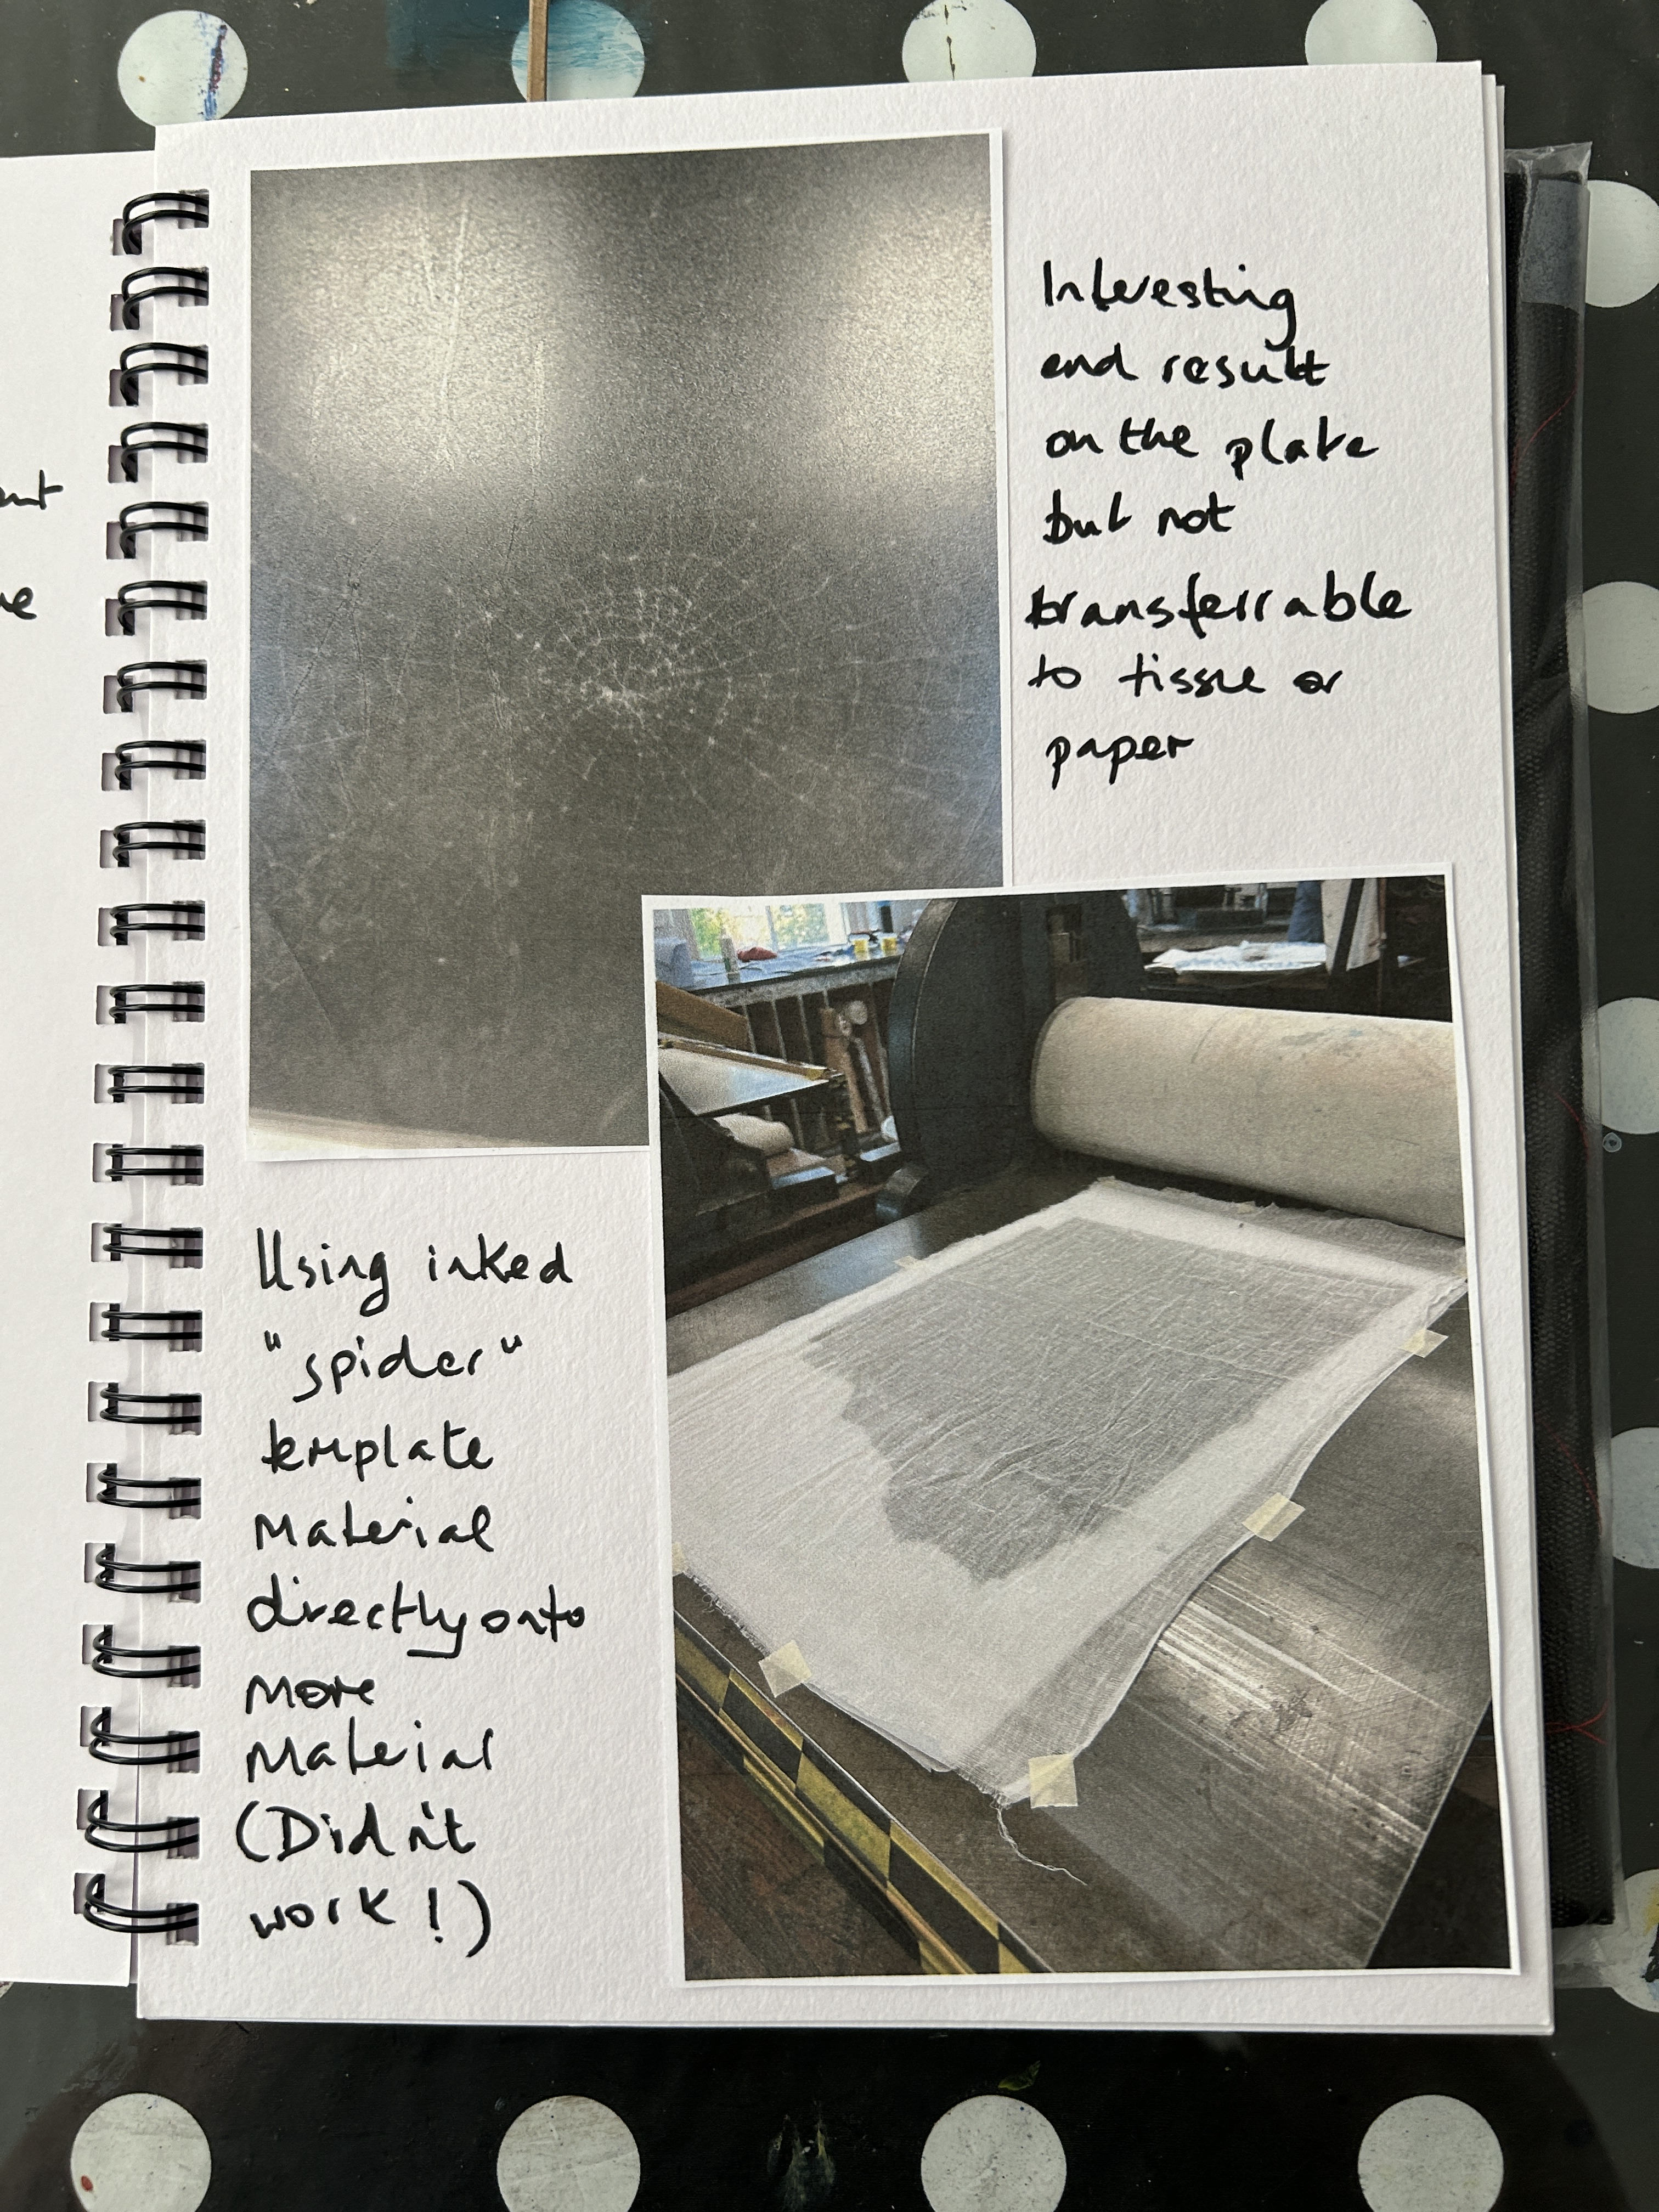 Interesting
end result
on the plate
but not
transferrable
to tissue or
paper
Using inked
"spider"
template
Material
directly onto
More
Material
(Didn't
work!)